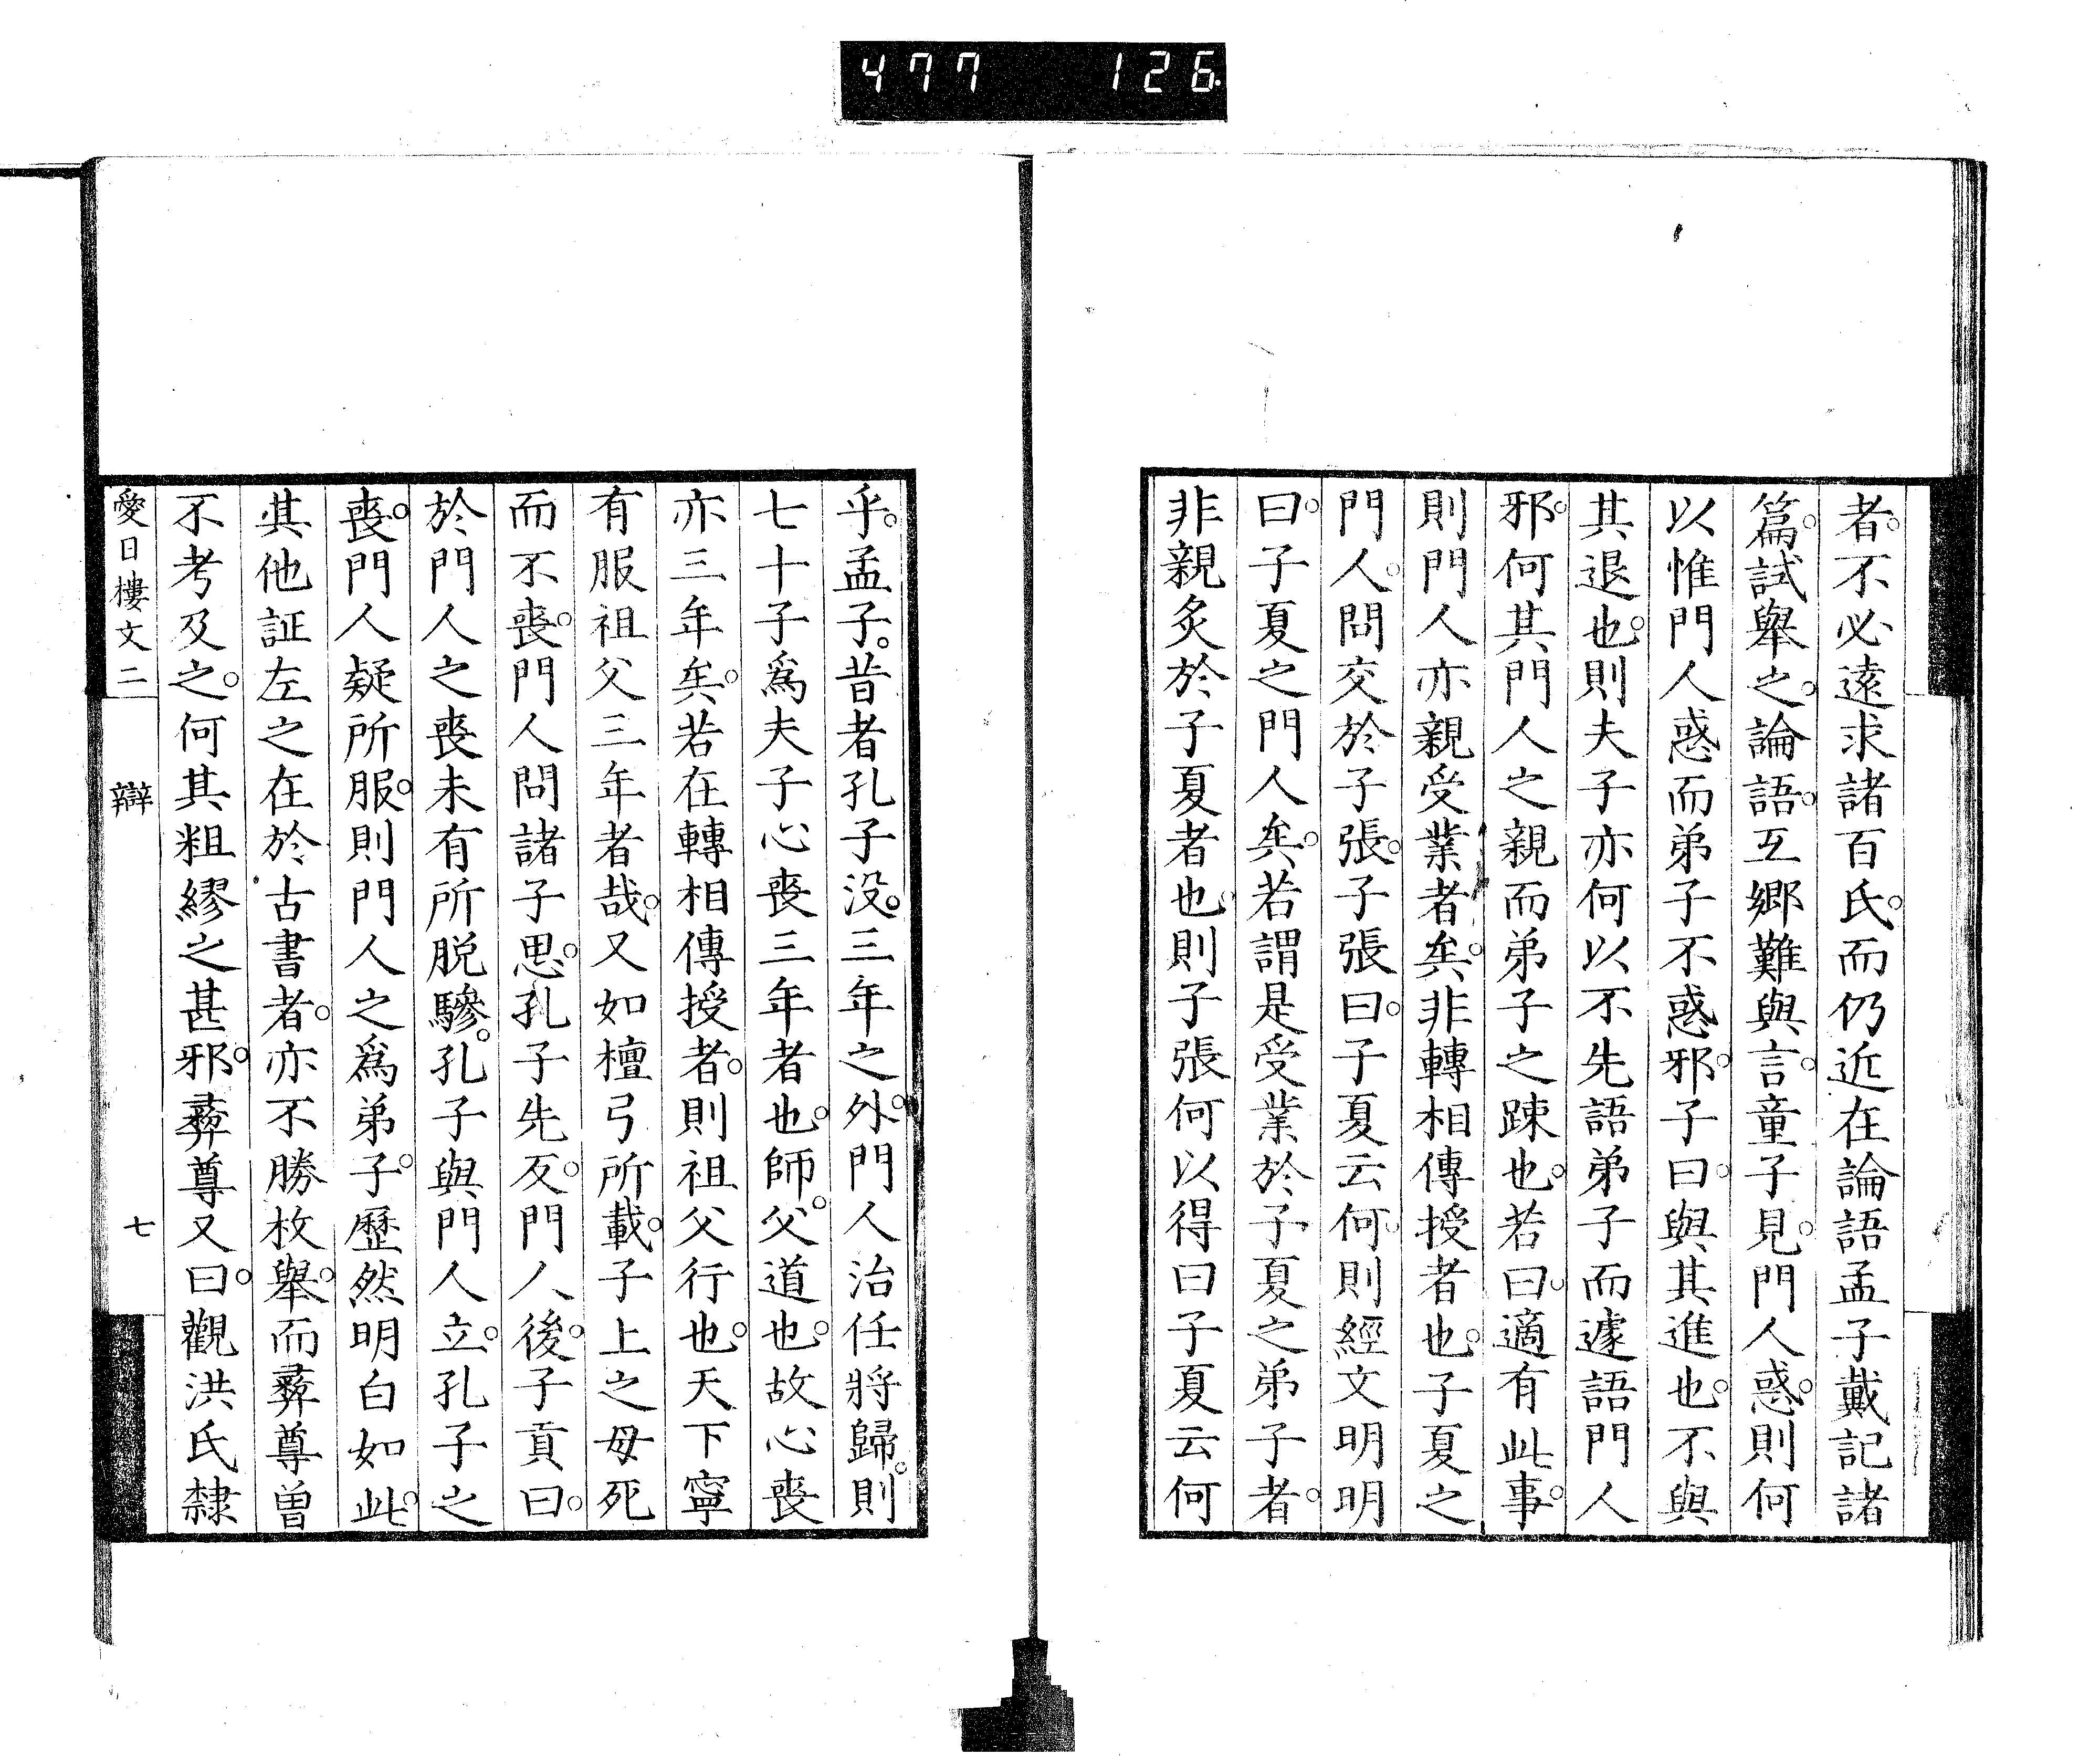 477 126
者。不必遠求諸百氏。而仍近在論語孟子戴記諸
篇。試舉之。論語。互郷難與言。童子見。門人惑。則何
以惟門人惑而弟子不惑邪。子曰。與其進也。不與
其退也。則夫子亦何以不先語弟子而遽語門人
邪。何其門人之親而弟子之踈也。若曰。適有此事。
則門人亦親受業者矣。非轉相傳授者也。子夏之
門人。問交於子張。子張曰。子夏云何。則經文明明
曰。子夏之門人矣。若謂是受業於子夏之弟子者。
非親炙於子夏者也。則子張何以得曰子夏云何
乎。孟子。昔者孔子没。三年之外。門人治任將歸。則
七十子爲夫子心喪三年者也。師。父道也。故心喪
亦三年矣。若在轉相傳授者。則祖父行也。天下寧
有服祖父三年者哉。又如檀弓所載。子上之母死
而不喪。門人問諸子思。孔子先反。門人後。子貢曰。
於門人之喪未有所脱驂。孔子與門人立。孔子之
喪。門人疑所服。則門人之爲弟子。歷然明白如此。
其他証左之在於古書者。亦不勝枚舉。而彛尊曽
不考及之。何其粗繆之甚邪。彛尊又曰。觀洪氏隸
愛日樓文二 辯 七